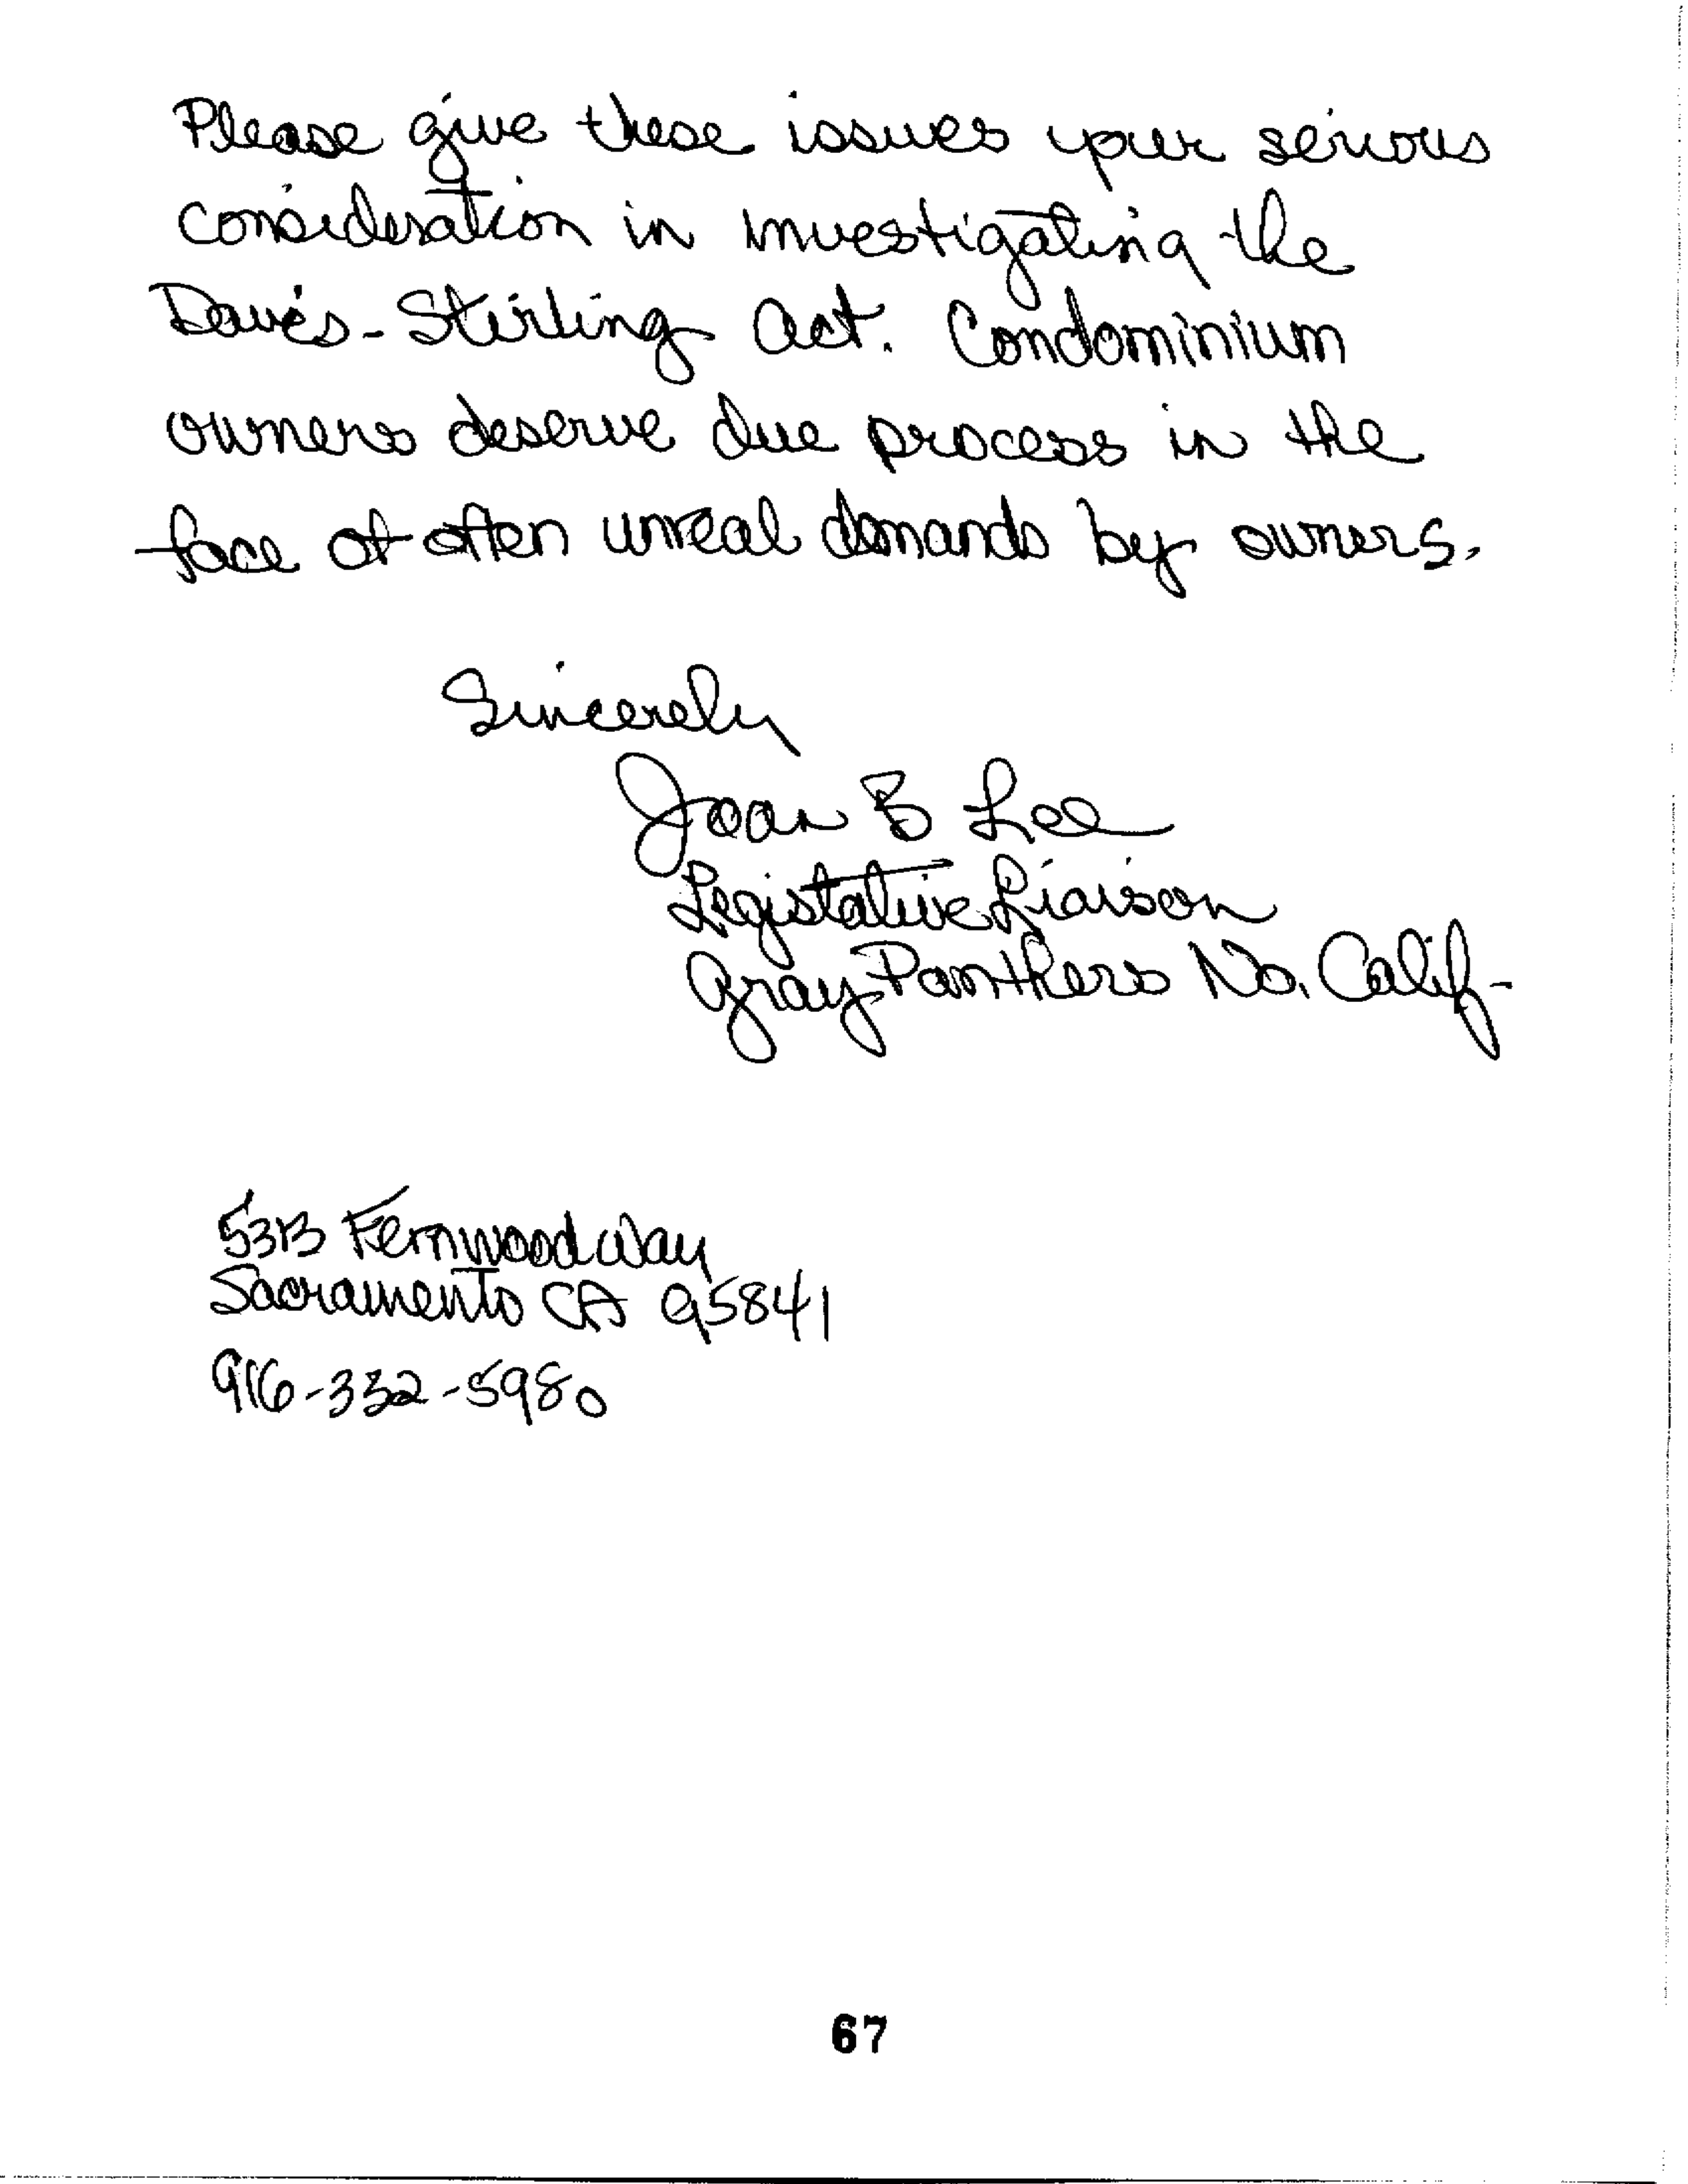 Please give these issues your serious
consideration in investigating the
Davis-Stirling Act. Condominium
owners deserve due process in the
face of often unreal demands by owners.
Sincerely
Joan B Lee
Legislative Liaison
Gray Panthers No. Calif.
5313 Fernwood Way
Sacramento CA 95841
916-332-5980
67